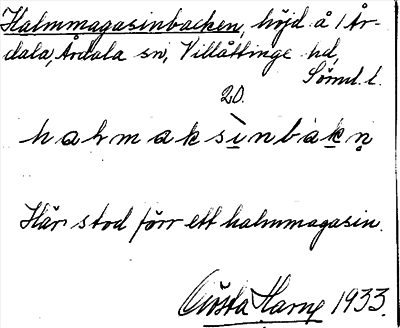 Halmmagasinbacken, höjd å 1 År-
dala, Årdala sn, Villåttinge hd,
Söml. l.
20.
halmaksinbakn̥
Här stod förr ett halmmagasin.
Gösta 1933.